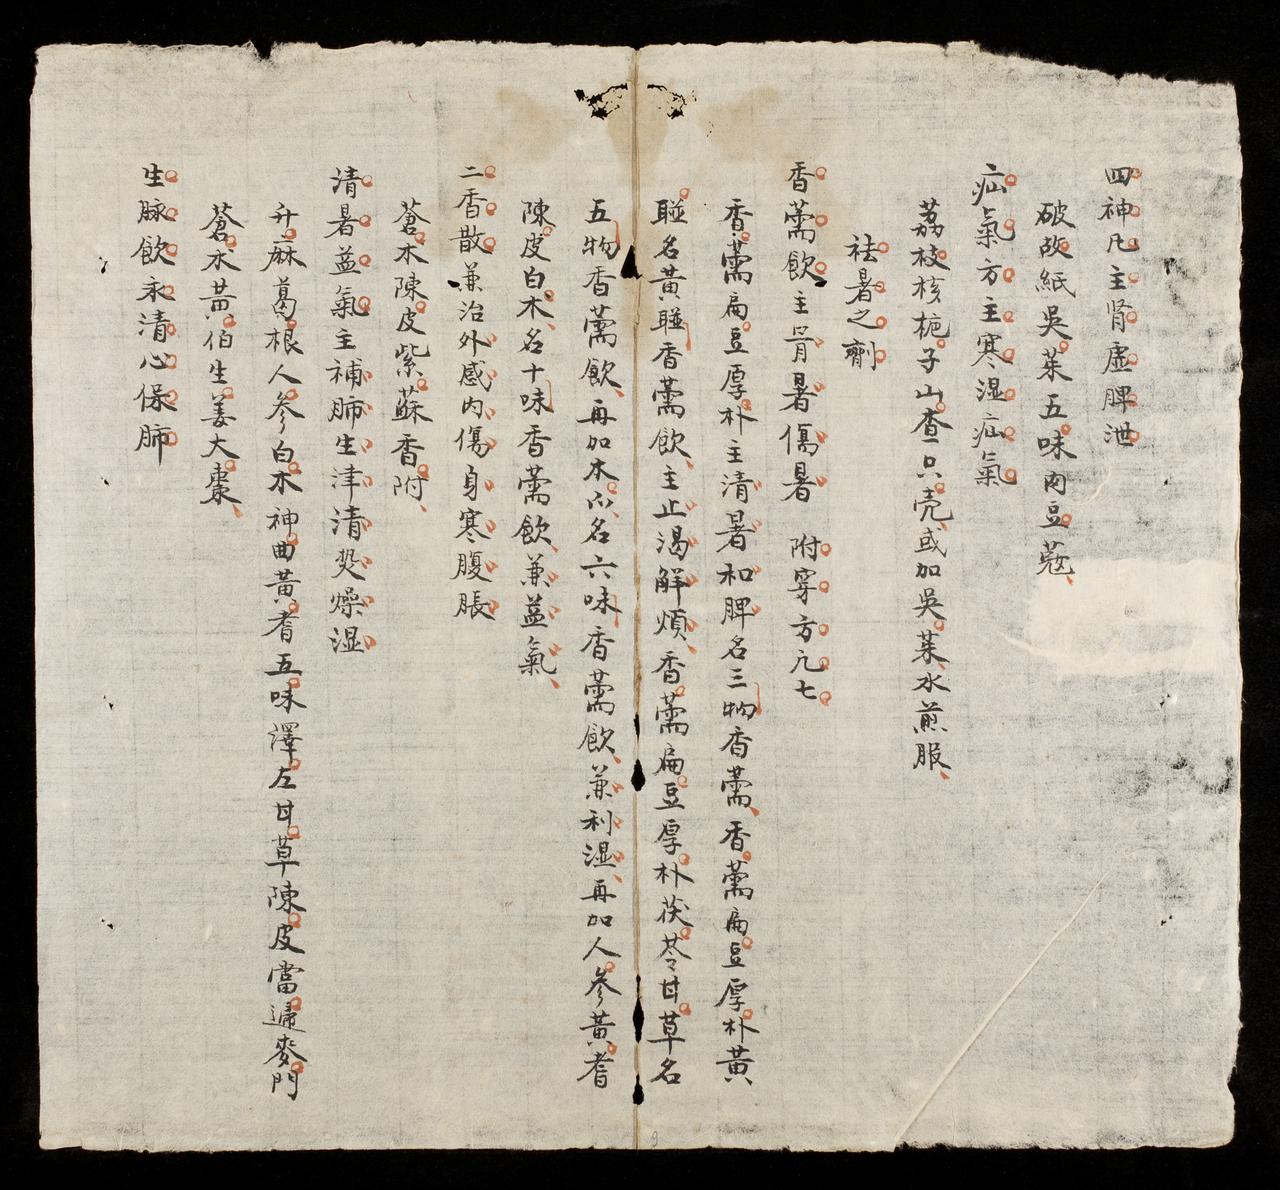 四神凡主肾虚脾泄
破故紙吳茱五味肉豆蔻
疝氣方主寒湿疝氣
荔枝核栀子山查只壳或加吳茱水煎服
祛暑之劑
香薷飲主胃暑傷暑 附穿方亢七
香薷扁豆厚朴主清暑和脾名三物香薷香薷扁豆厚朴黃
䁖名黃䁖香薷飲主止渴解煩香薷扁豆厚朴茯苓甘草名
五物香薷飲再加木瓜名六味香薷飲兼利湿再加人參黃耆
陳皮白木名十味香薷飲兼益氣
二香散兼治外感內傷身寒腹脹
蒼木陳皮紫蘇香附
清暑益氣主補肺生津清熒燥湿
升麻葛根人參白木神曲黃耆五味澤左甘草陳皮當遍麥門
蒼木黃伯生姜大棗
生脉飲永清心保肺